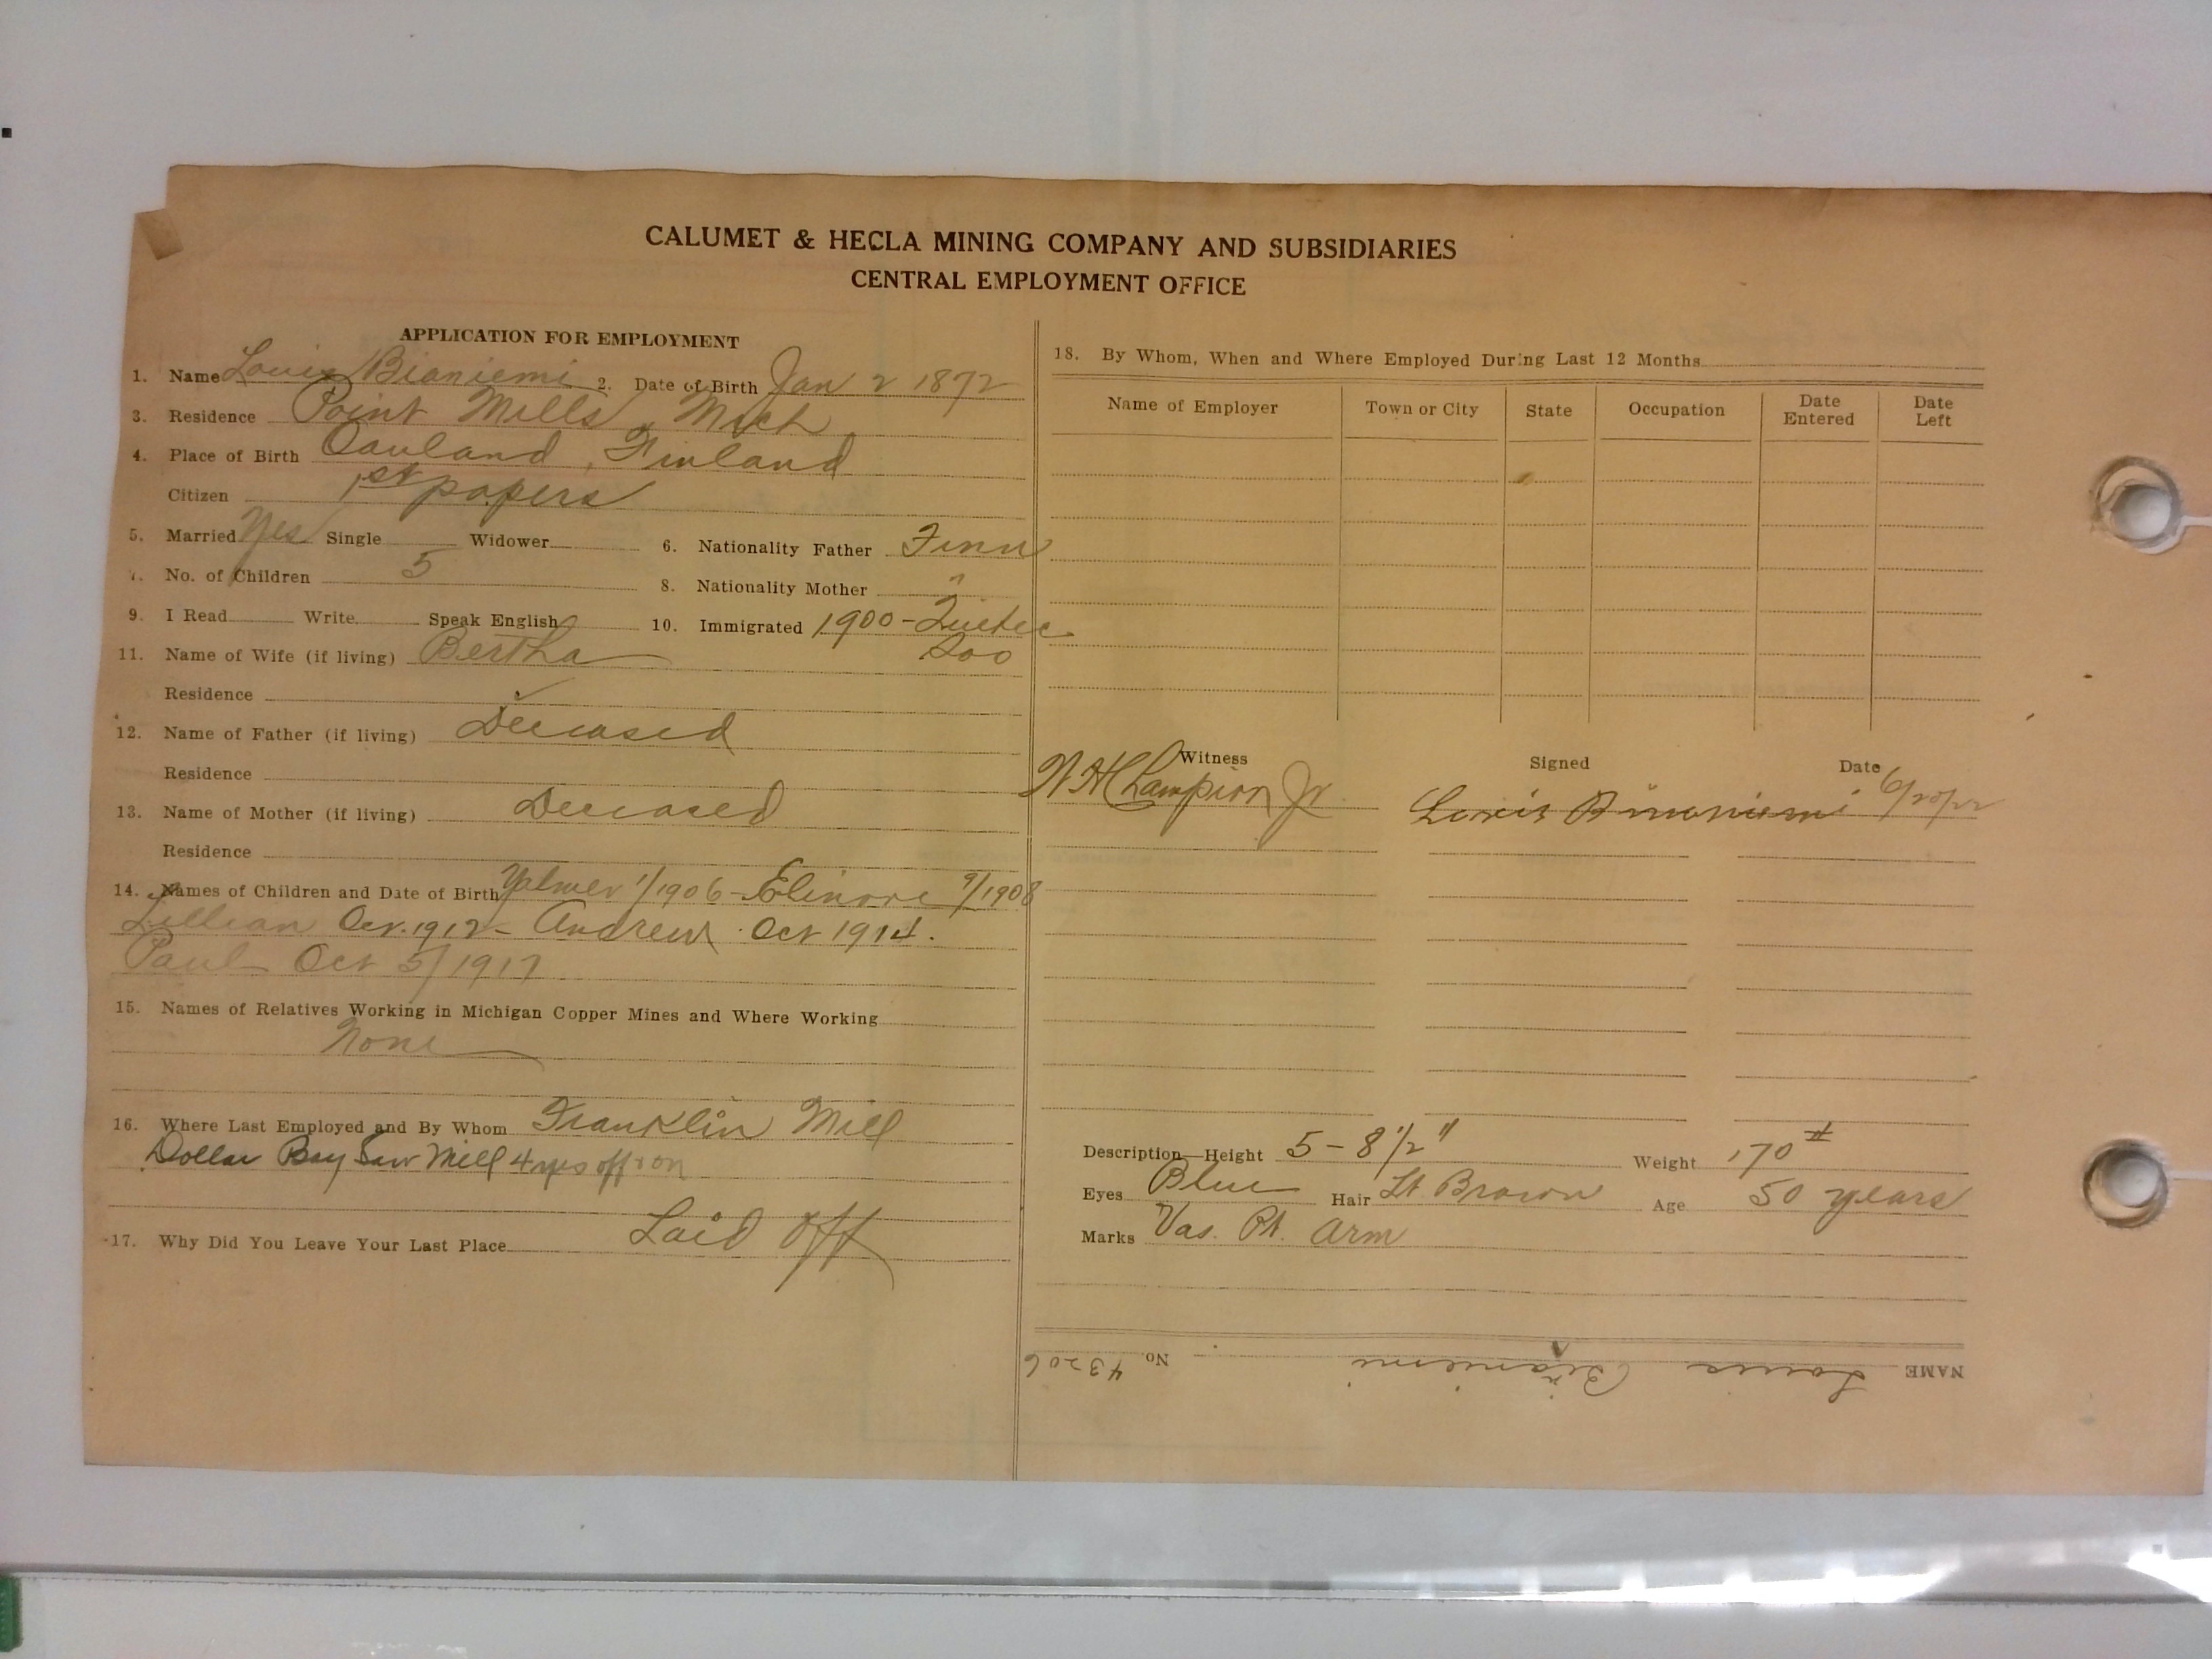 CALUMET & HECLA MINING COMPANY AND SUBSIDIARIES
CENTRAL EMPLOYMENT OFFICE
APPLICATION FOR EMPLOYMENT
1. Name Louis Bianiemi 2. Date of Birth Jan 2 1872
3. Residence Point Mills, Mich
4. Place of Birth Oauland, Finland
Citizen 1st papers
5. Married Yes Single Widower 6. Nationality Father Finn
7. No. of Children 5 8. Nationality Mother "
9. I Read Write Speak English 10. Immigrated 1900 - Quebec
Soo
11. Name of Wife (if living) Bertha
Residence ✓
12. Name of Father (if living) Deceased
Residence
13. Name of Mother (if living) Deceased
Residence
14. Names of Children and Date of Birth 1/1906 - Elinore 9/1908
Lillian Oct. 1912 - Andrew Oct 1914.
Paul Oct 5/1917
15. Names of Relatives Working in Michigan Copper Mines and Where Working
None
16. Where Last Employed and By Whom Franklin Mill
Dollar Bay Saw Mill 4 yrs off & on
17. Why Did You Leave Your Last Place Laid Off
18. By Whom, When and Where Employed During Last 12 Months
Name of Employer Town or City State Occupation Date Entered Date Left
Witness Signed Date
Champion Jr. Louis
Description—Height 5 - 8 1/2" Weight 170#
Eyes Blue Hair Lt. Brown Age 50 years
Marks Vas. Rt. Arm
NAME Louis No. 43206